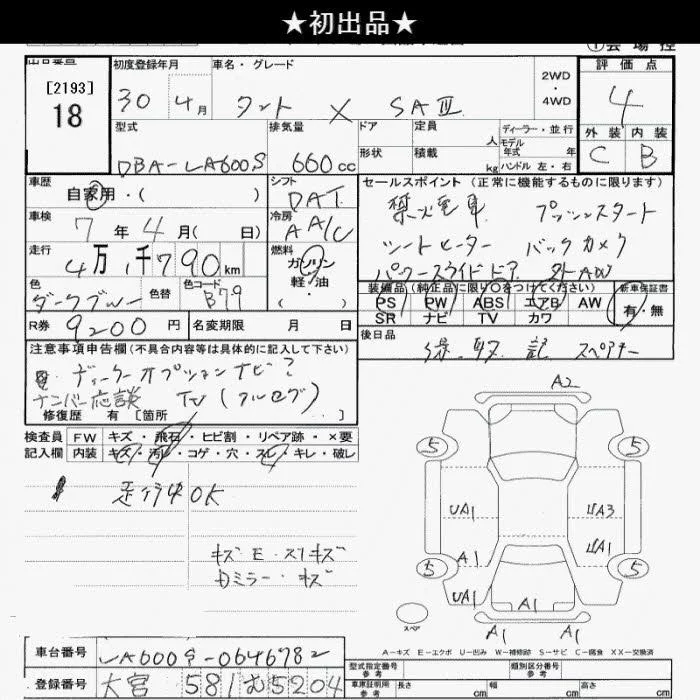 ★初出品★
初度登録年月 車名・グレード 2WD ・ 4WD 評価点
[2193]
18
30年 4月 タント X SAⅢ 4
型式 排気量 ドア 定員 人 ディーラー・並行 外装 内装
DBA-LA600S 660cc 形状 積載 kg モデル年式 年 ハンドル 左・右 C B
車歴 シフト セールスポイント (正常に機能するものに限ります)
自家用・( ) DAT 禁火電車 プッシュスタート
車検 7年 4月( 日) 冷房 AA/C シートヒーター バックカメラ
走行 4万 1千790km 燃料 ガソリン 軽・油 ・( ) パワースライドドア
色 色替 色コード 装備品(純正品に限り○をつけてください) 新車保証書
B79 PS PW ABS エアB AW 有・無
SR ナビ TV カワ
R券 9200円 名変期限 月 日 後日品
注意事項申告欄(不具合内容等は具体的に記入して下さい) 記 スペアキー
ディーラーオプションナビ?
ナンバー応談 TV(フルセグ)
修復歴 有 [箇所 ]
検査員記入欄 FW キズ・飛石・ヒビ割・リペア跡・×要
内装 キズ・汚レ・コゲ・穴・スレ・キレ・破レ
走行中OK
キズ・E・スリキズ
ミラー・キズ
A2
5 5
UA1 UA3
A1 UA1
5 5
UA1
A1
A1 A1
スペア
A-キズ E-エクボ U-凹み W-補修跡 S-サビ C-腐食 XX-交換済
車台番号 LA600S-0646782
登録番号 大宮 581 む5204
型式指定番号 参考 類別区分番号 参考
車庫証明用 参考 長さ cm 幅 cm 高さ cm